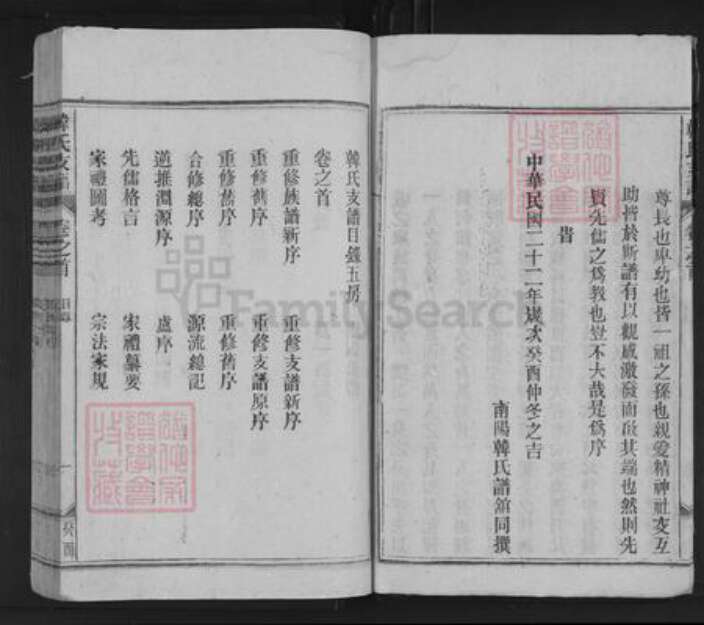 尊長也卑幼也皆一祖之孫也親愛精神社交互
助皆於斯譜有以觀感激發而啟其端也然則先
賢先儒之為教也豈不大哉是為序
旹
中華民國二十二年歲次癸酉仲冬之吉
南陽韓氏譜館同撰
韓氏支譜目錄五房
卷之首
重修族譜新序　重修支譜新序
重修舊序　重修支譜原序
重修舊序　重修舊序
合修總序　源流總記
遡推淵源序　盧序
先儒格言　家禮纂要
家禮圖考　宗法家規
韓氏支譜
卷之首
目錄
一
癸酉
FamilySearch